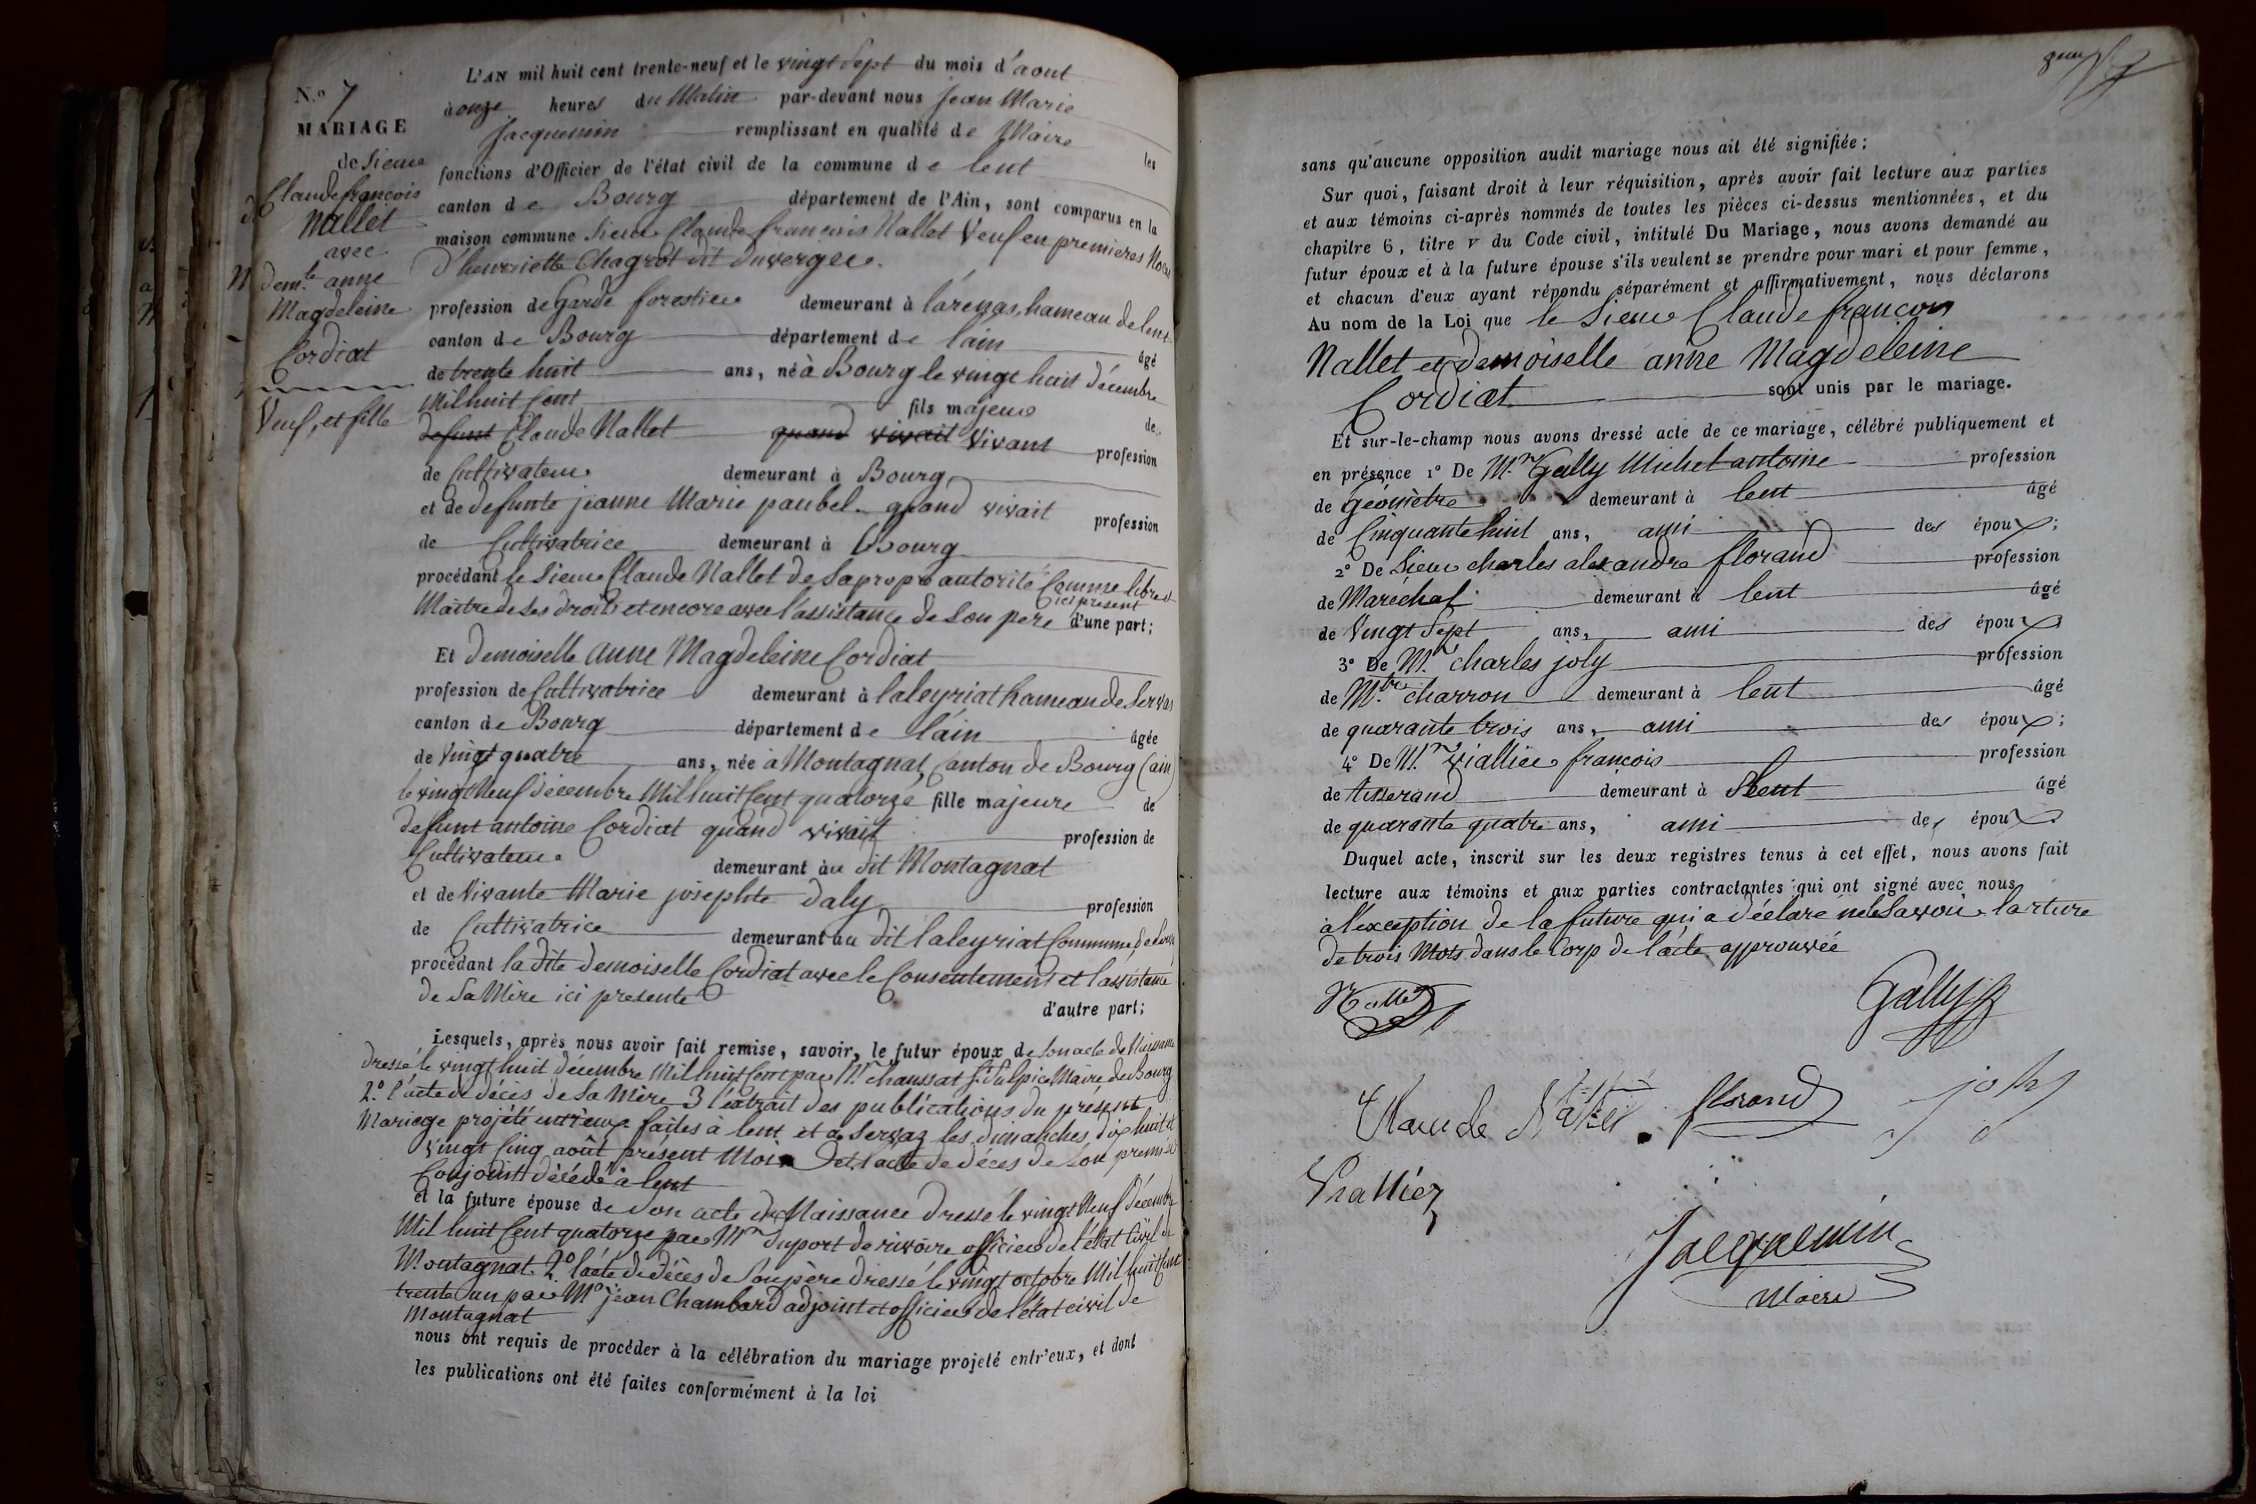 L'AN mil huit cent trente-neuf et le vingt sept du mois d'aout
N.º 7
à onze heures du Matin par-devant nous jean Marie
MARIAGE
Jacquemin remplissant en qualité de Maire les
de Sieur
fonctions d'Officier de l'état civil de la commune de lent
Claude françois
canton de Bourg département de l'Ain, sont comparus en la
Nallet
maison commune Sieur Claude françois Nallet Veuf en premieres Noces
avec
d'henriette Chagrot dit duverger.
dem.lle anne
Magdeleine
profession de Garde forestier demeurant à larenas, hameau de lent
Cordiat
canton de Bourg département de l'ain âgé
de trente huit ans, né à Bourg le vingt huit décembre
Veuf, et fille
Mil huit Cent fils majeur de
defunt Claude Nallet quand vivait Vivant profession
de Cultivateur demeurant à Bourg
et de defunte jeanne Marie paubel quand vivait profession
de Cultivatrice demeurant à Bourg
procédant le Sieur Claude Nallet de Sa propre autorité Comme libre et
ici présent
Maitre de Ses droits et encore avec l'assistance de Son pere d'une part;
Et Demoiselle anne Magdeleine Cordiat
profession de Cultivatrice demeurant à laleyriat hameau de Servas
canton de Bourg département de l'ain âgée
de Vingt quatre ans, née à Montagnat, Canton de Bourg (ain)
le vingt Neuf décembre Mil huit Cent quatorze fille majeure de
defunt antoine Cordiat quand vivait profession de
Cultivateur demeurant au dit Montagnat
et de Vivante Marie josephte daly profession
de Cultivatrice demeurant au dit laleyriat Commune de
procédant la dite demoiselle Cordiat avec le Consentement et l'assistance
de Sa Mère ici presente
d'autre part;
Lesquels, après nous avoir fait remise, savoir, le futur époux de Son acte de Naissance
dressé le vingt huit décembre Mil huit Cent par Mr chaussat St Sulpice Maire de Bourg
2º. l'acte de décès de Sa Mère 3 l'extrait des publications du présent
Mariage projété entr'eux faites à lent et à Servaz les dimanches dix huit et
vingt Cinq août présent Mois et l'acte de déces de Son premier
Conjoint décédé à lent
et la future épouse de Son acte de Naissance dressé le vingt Neuf décembre
Mil huit Cent quatorze par Mr duport de rivoire officier de l'état Civil de
Montagnat. 2º l'acte de décès de Son père dressé le vingt octobre Mil huit Cent
trente un par Mr jean Chambard adjoint et officier de l'état civil de
Montagnat
nous ont requis de procéder à la célébration du mariage projeté entr'eux, et dont
les publications ont été faites conformément à la loi
sans qu'aucune opposition audit mariage nous ait été signifiée;
Sur quoi, faisant droit à leur réquisition, après avoir fait lecture aux parties
et aux témoins ci-après nommés de toutes les pièces ci-dessus mentionnées, et du
chapitre 6, titre v du Code civil, intitulé Du Mariage, nous avons demandé au
futur époux et à la future épouse s'ils veulent se prendre pour mari et pour femme,
et chacun d'eux ayant répondu séparément et affirmativement, nous déclarons
Au nom de la Loi que le Sieur Claude françois
Nallet et demoiselle anne Magdeleine
Cordiat sont unis par le mariage.
Et sur-le-champ nous avons dressé acte de ce mariage, célébré publiquement et
en présence 1º De M.r Gally Michel antoine profession
de géomètre demeurant à lent âgé
de Cinquante huit ans, ami des époux;
2º De Sieur charles alexandre florand profession
de Maréchal demeurant à lent âgé
de Vingt Sept ans, ami des époux
3º De M.r charles joly profession
de M.tre charron demeurant à lent âgé
de quarante trois ans, ami des époux;
4º De M.r viallier françois profession
de tisserand demeurant à lent âgé
de quarante quatre ans, ami des époux.
Duquel acte, inscrit sur les deux registres tenus à cet effet, nous avons fait
lecture aux témoins et aux parties contractantes qui ont signé avec nous
à l'exception de la future qui a déclaré ne le Savoir. larture
de trois Mots dans le Corp de l'acte approuvée
Nallet
Gally
Claude Nallet florand joly
Viallier
Jacquemin
Maire